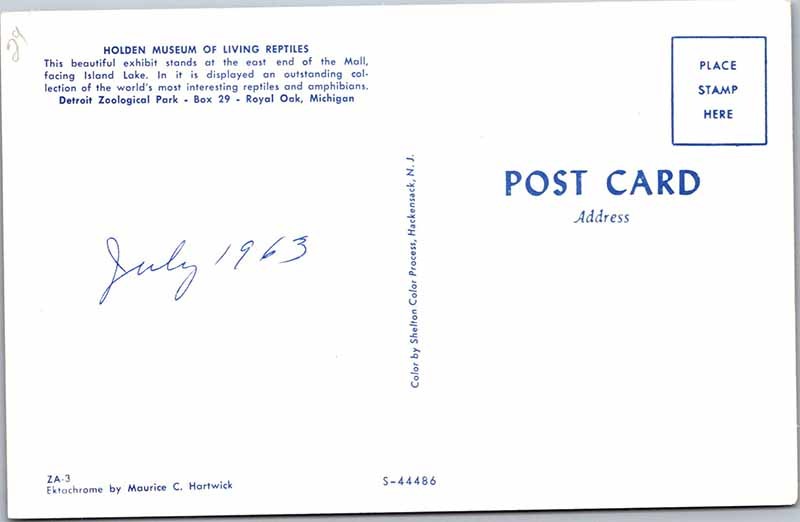 29
HOLDEN MUSEUM OF LIVING REPTILES
This beautiful exhibit stands at the east end of the Mall,
facing Island Lake. In it is displayed an outstanding col-
lection of the world's most interesting reptiles and amphibians.
Detroit Zoological Park - Box 29 - Royal Oak, Michigan
July 1963
ZA-3
Ektachrome by Maurice C. Hartwick
Color by Shelton Color Process, Hackensack, N. J.
S-44486
PLACE
STAMP
HERE
POST CARD
Address